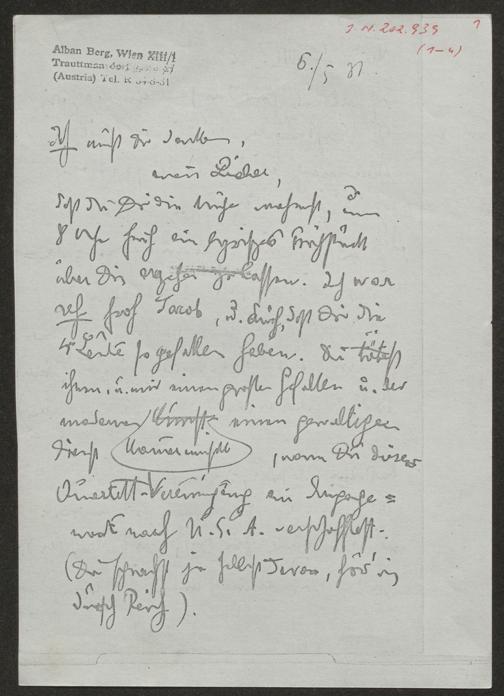 J.N.202.939
1
(1-4)
Alban Berg, Wien XIII/1
Trauttmansdorffg. 27
(Austria) Tel. R 34-8-31
6./5 31
Ich muß Dir danken,
mein Lieber,
daß Du Dir die Mühe nahmst, um
8 Uhr früh ein lyrisches Frühstück
über Dir ergehen zu lassen. Ich war
sehr froh, u. auch, daß Dir die
4 Leute so gefallen haben. Du
ihnen, u. mir einen großen Gefallen u. der
modernen einen gewaltigen
Dienst, wenn Du dieser
Quartett-Vereinigung ein Engage=
ment nach U.S.A. verschaffst.
(Du sprachst ja selbst davon, hör' ich
durch Reich).